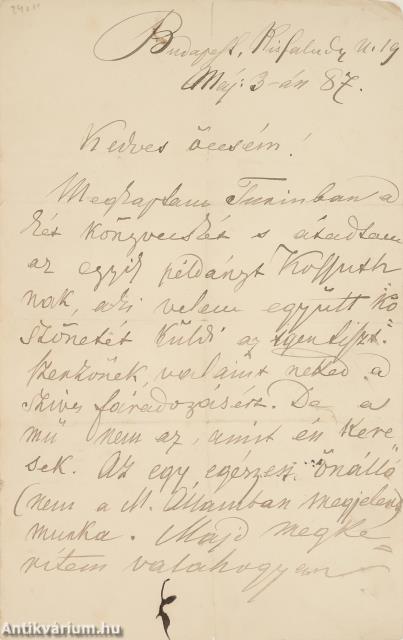 Budapest, Kisfaludy u. 19
Máj: 3-án 87.
Kedves öcsém!
Megkaptam Turinban a
két könyvecskét s átadtam
az egyik példányt Kossuth
nak, aki velem együtt kö
szönetét küldi az igen tiszt.
szerzőnek, valamint neked a
szives fáradozásért. De a
mű nem az, amit én kere
sek. Az egy, egészen önálló
(nem a M. Államban megjelent)
munka. Majd megke
rítem valahogyan
Antikvárium.hu